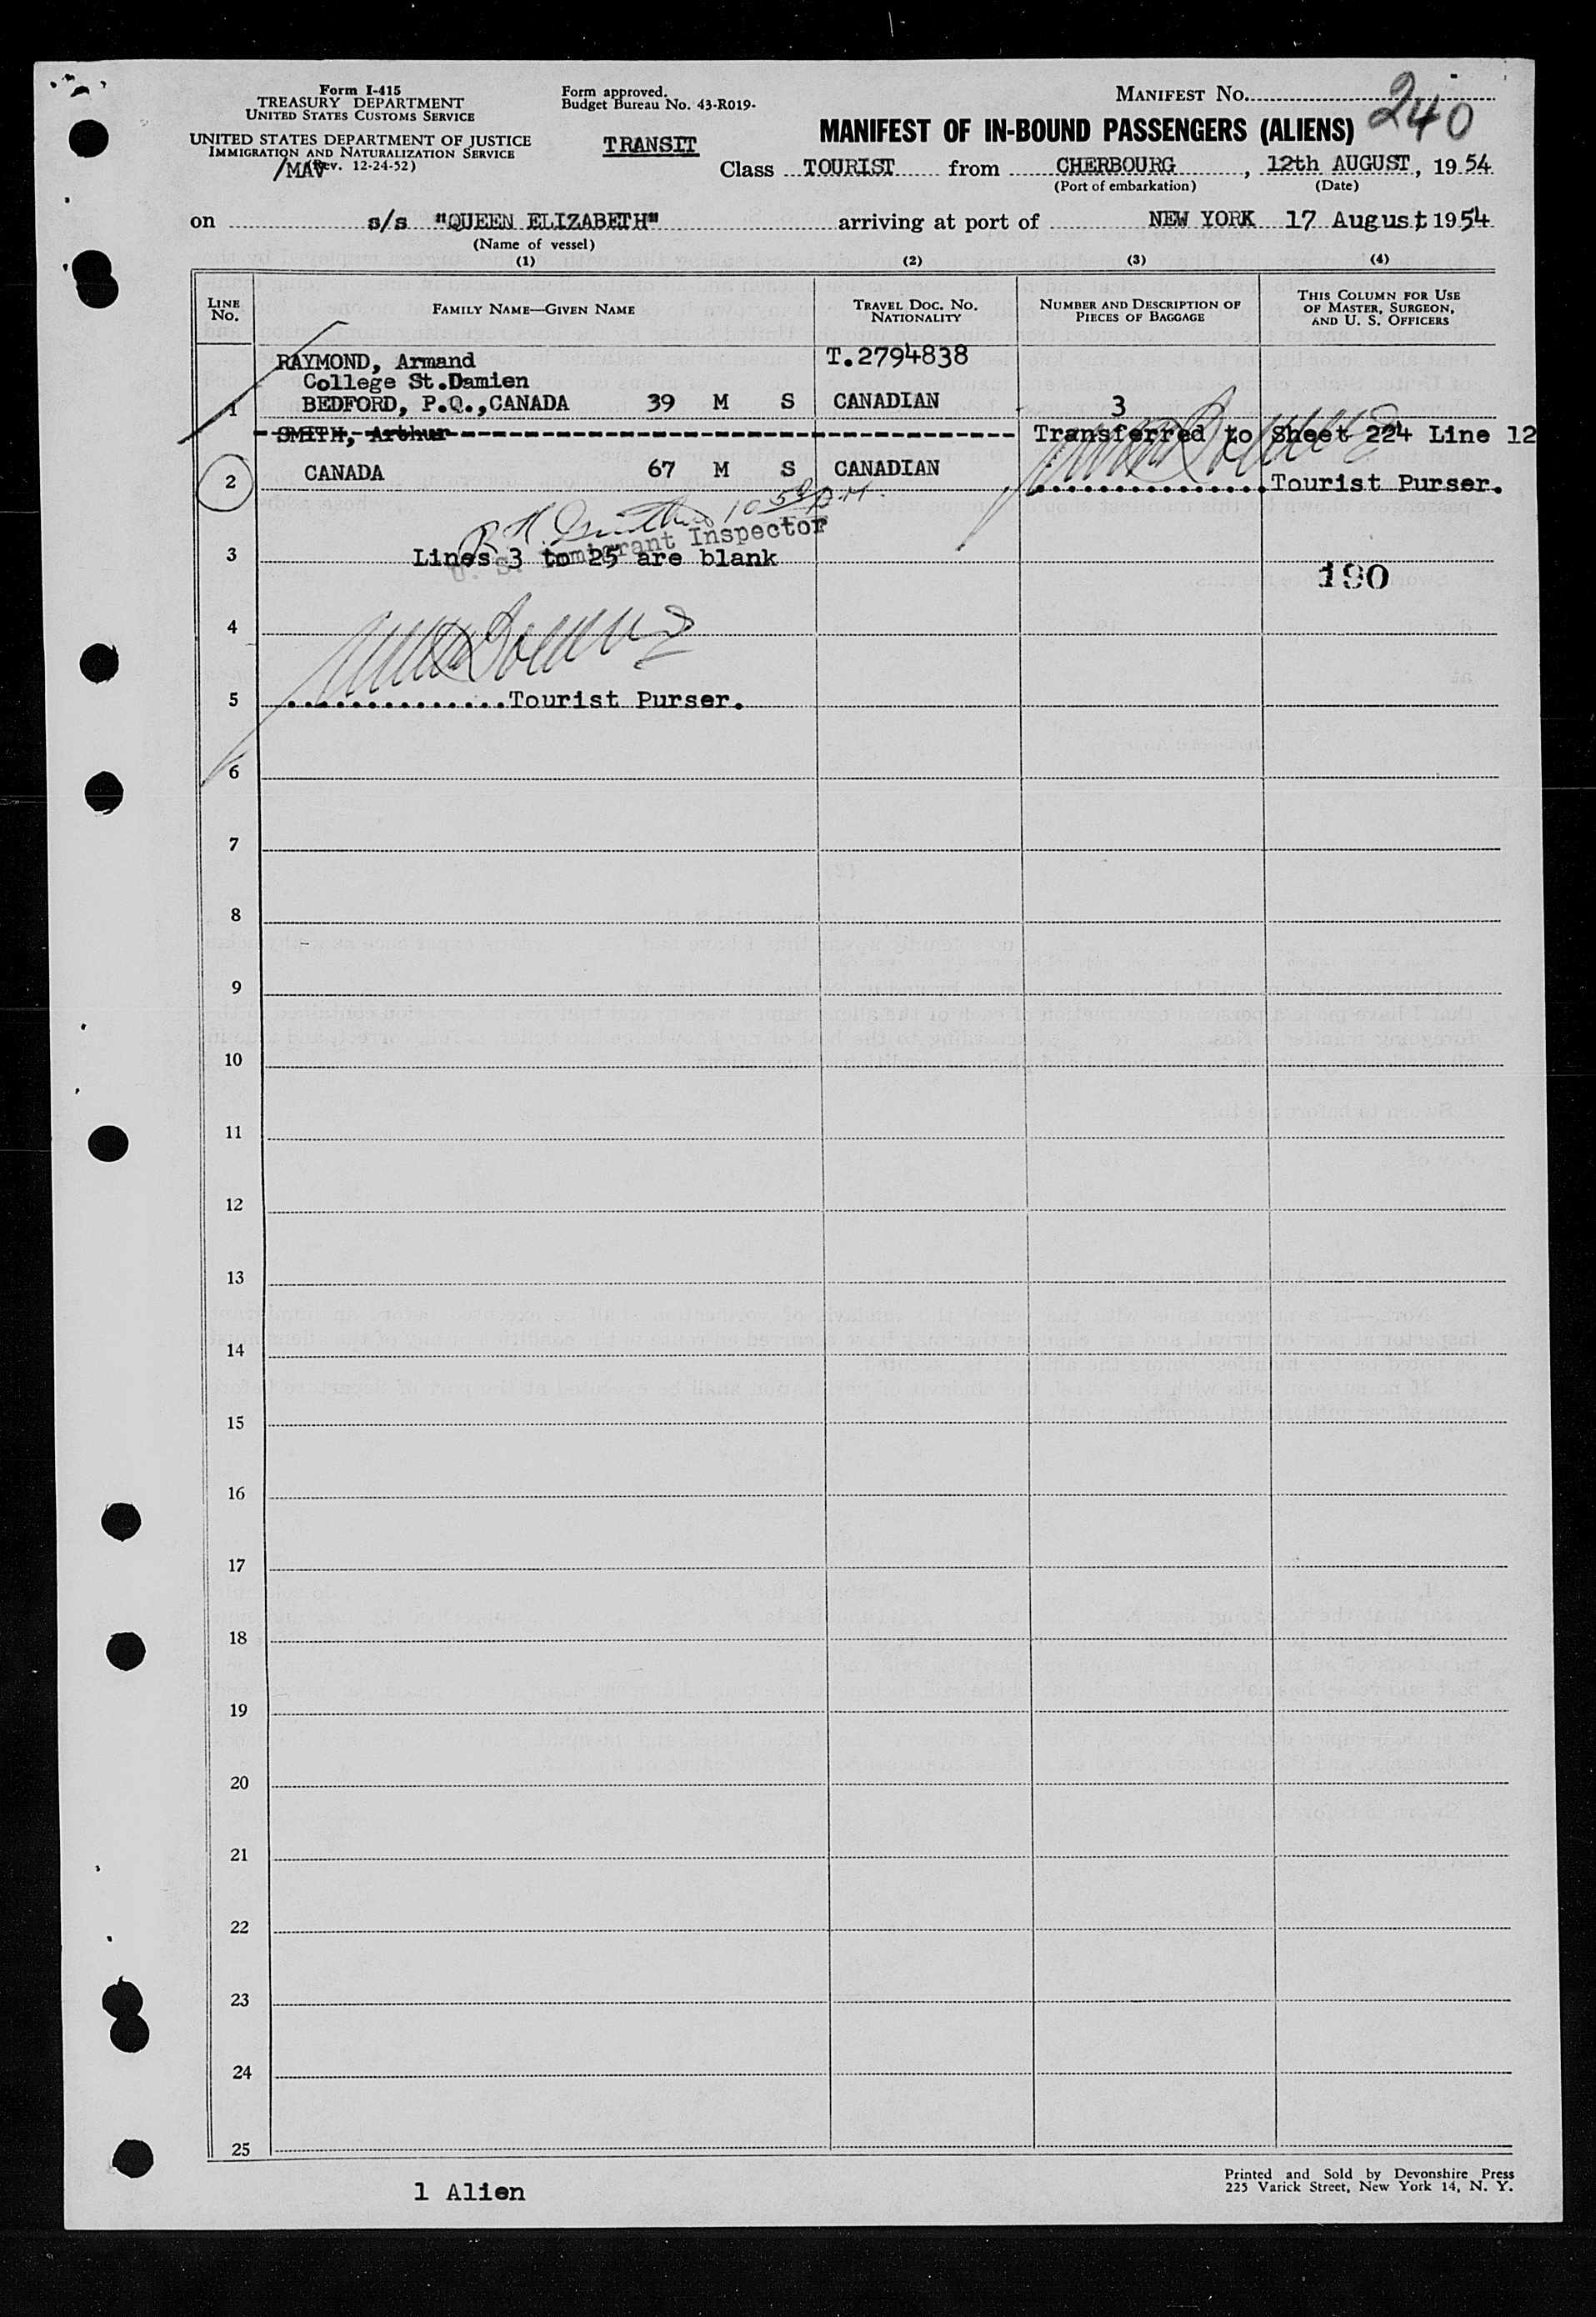 Form I-415
TREASURY DEPARTMENT
UNITED STATES CUSTOMS SERVICE
UNITED STATES DEPARTMENT OF JUSTICE
IMMIGRATION AND NATURALIZATION SERVICE
(Rev. 12-24-52)
/MAV
Form approved.
Budget Bureau No. 43-R019-
TRANSIT
MANIFEST No. 240
MANIFEST OF IN-BOUND PASSENGERS (ALIENS)
Class TOURIST from CHERBOURG, 12th AUGUST, 1954
(Port of embarkation) (Date)
on s/s "QUEEN ELIZABETH" arriving at port of NEW YORK 17 August 1954
(Name of vessel)
(1) (2) (3) (4)
LINE No. FAMILY NAME—GIVEN NAME TRAVEL DOC. NO. NATIONALITY NUMBER AND DESCRIPTION OF PIECES OF BAGGAGE THIS COLUMN FOR USE OF MASTER, SURGEON, AND U. S. OFFICERS
RAYMOND, Armand T.2794838
College St.Damien
1 BEDFORD, P.Q.,CANADA 39 M S CANADIAN 3
SMITH, Arthur Transferred to Sheet 224 Line 12
2 CANADA 67 M S CANADIAN
Tourist Purser.
U. S. Immigrant Inspector
3 Lines 3 to 25 are blank
190
4
5 Tourist Purser.
6
7
8
9
10
11
12
13
14
15
16
17
18
19
20
21
22
23
24
25
1 Alien
Printed and Sold by Devonshire Press
225 Varick Street, New York 14, N. Y.